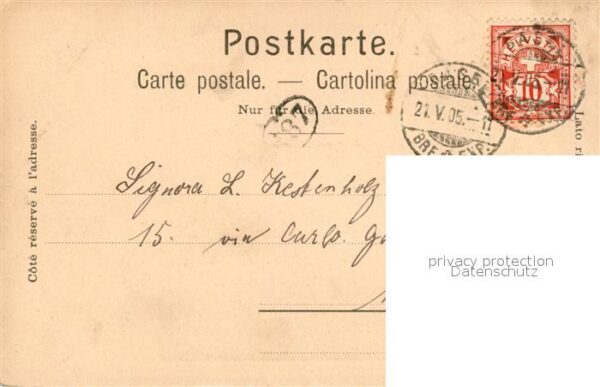 Postkarte.
Carte postale. — Cartolina postale.
Nur für die Adresse.
Côté réservé à l'adresse.
Lato ri
10
21. V. 05. – 11
BRF. EXP.
Signora L. Kestenholz
15. via Carlo
privacy protection
Datenschutz